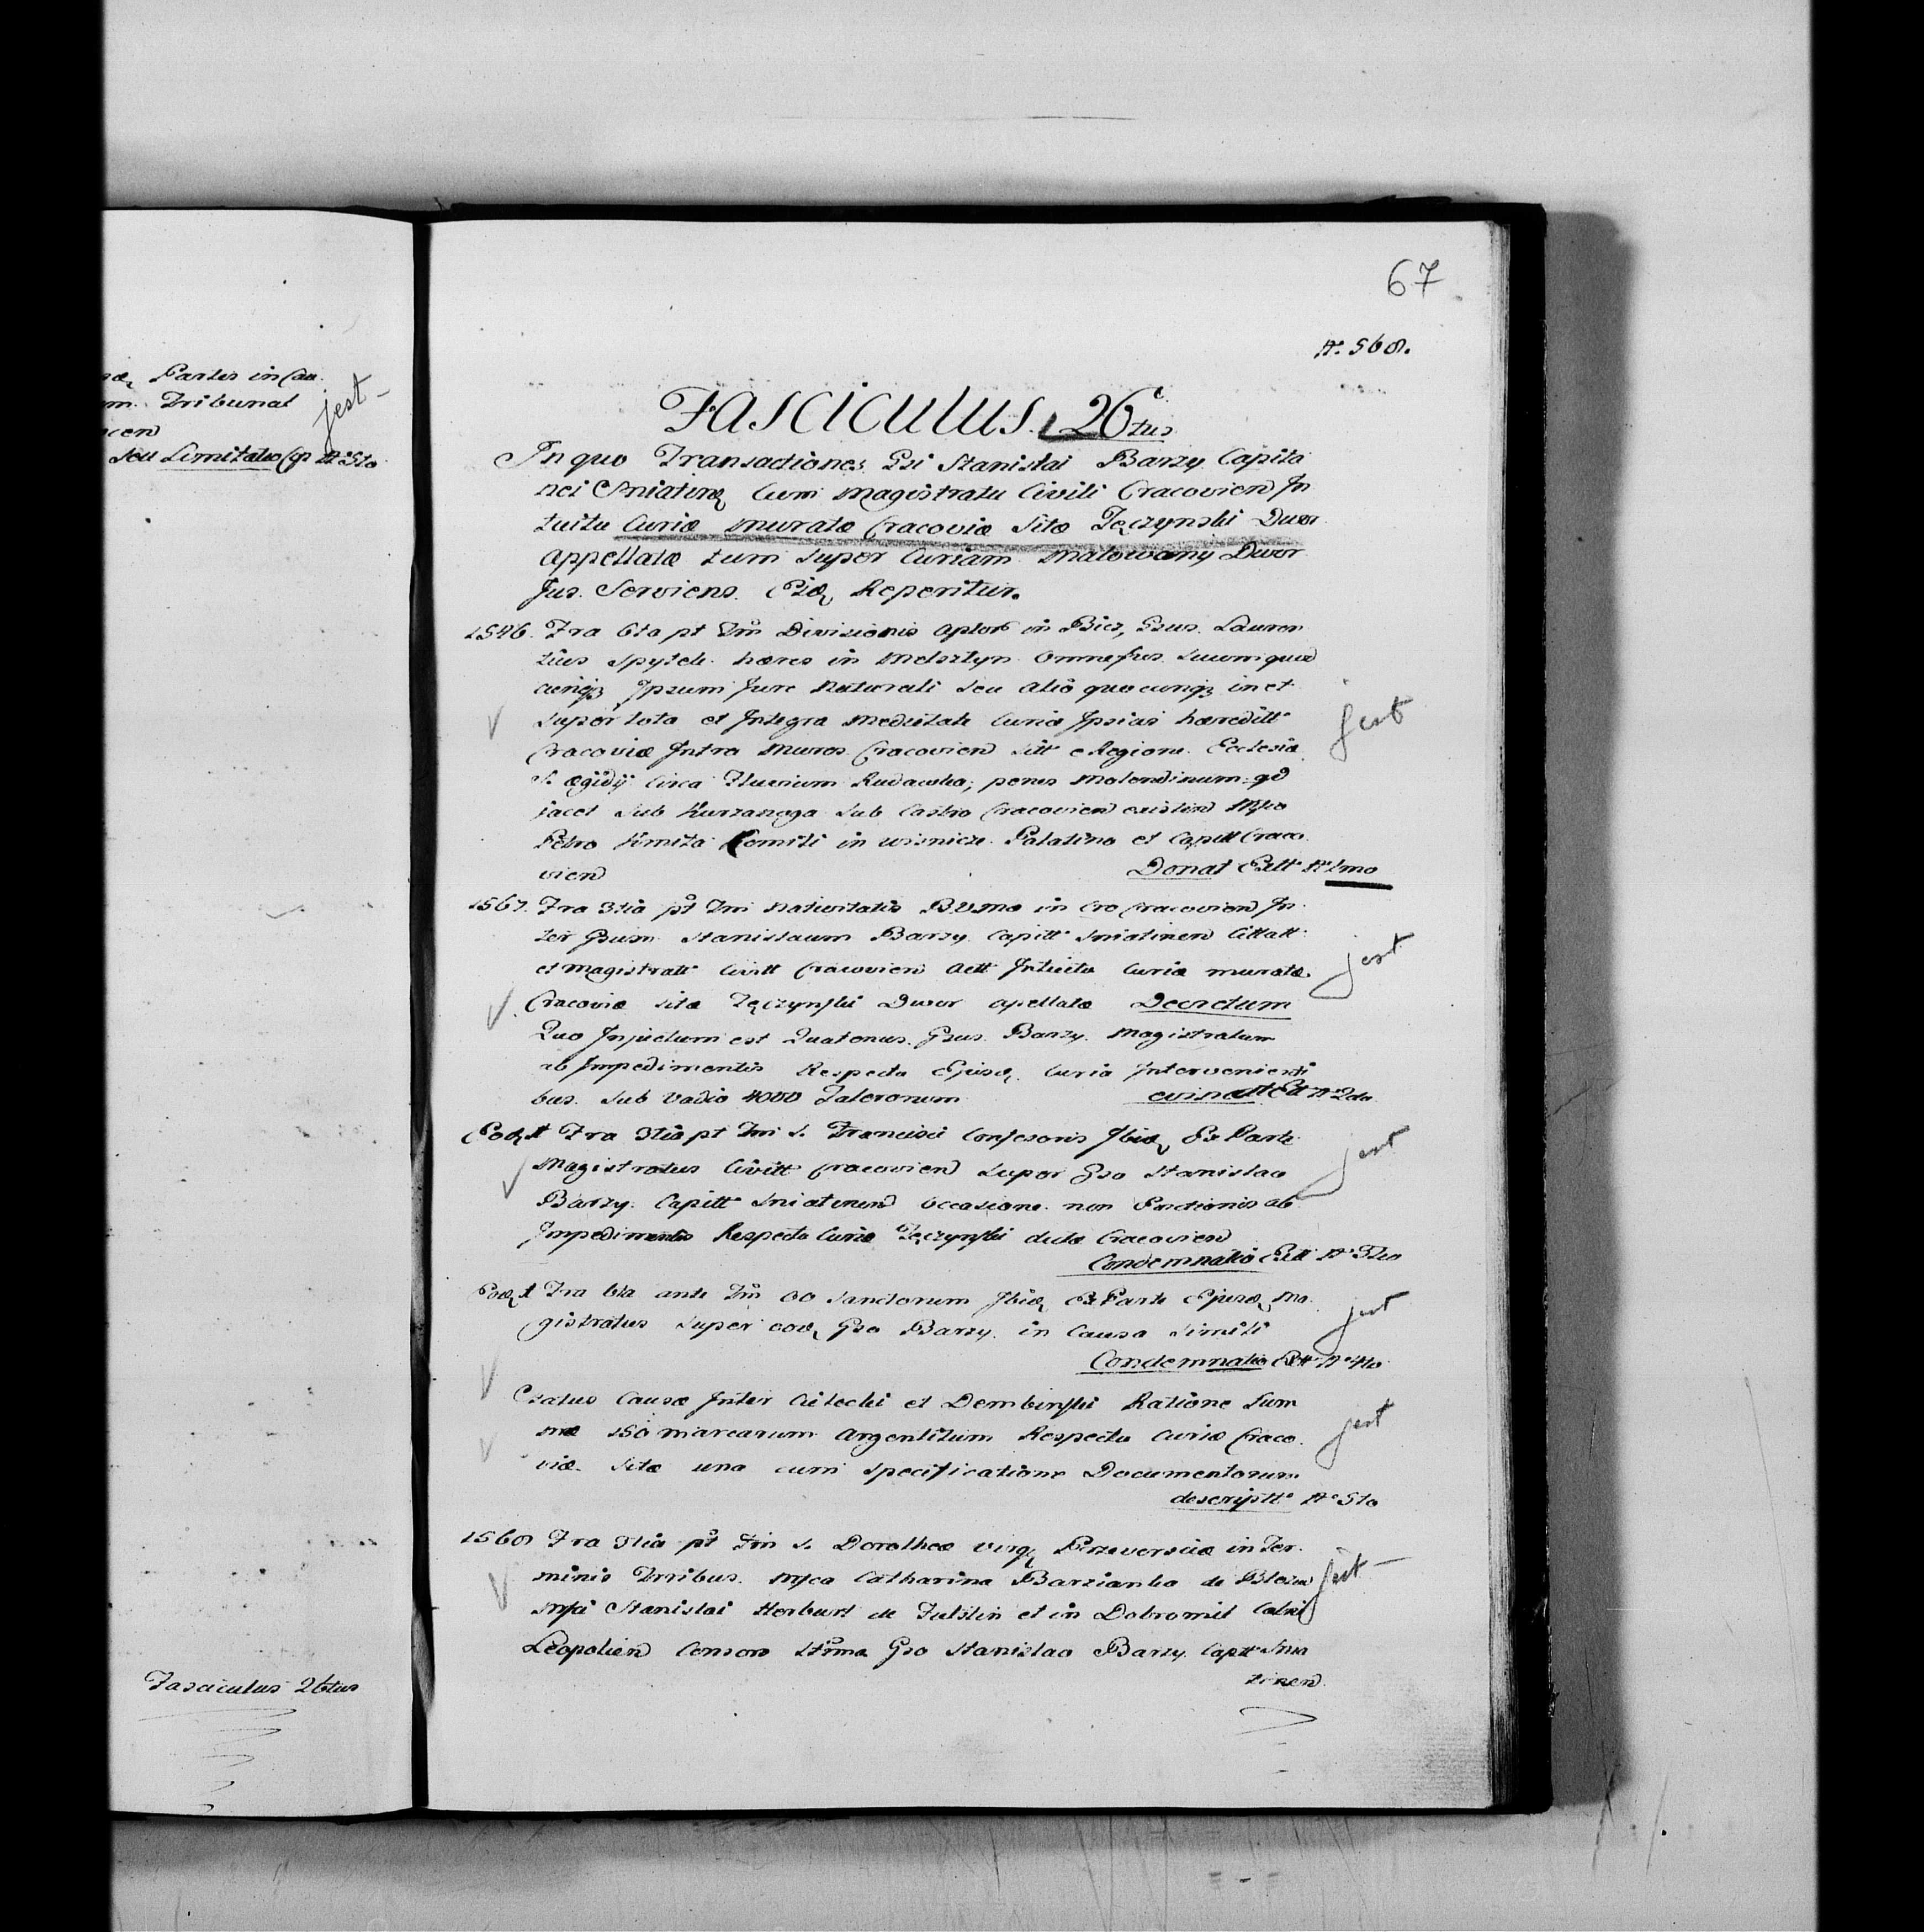 næ Partes in Cau
m. Tribunal jest
cen
seu Limitatio Gp Nº 5to
Fasciculus 26tus
67
Nº 568.
Fasciculus. 26tus
In quo Transactiones Gsi Stanislai Barzy Capita
nei Sniatinen Cum Magistratu Civili Cracovien In
tuitu Curiæ muratæ Cracoviæ Sitæ Tęczynski Dwor
appellatæ tum super Curiam Malowany Dwor
Jus Serviens Reperitur.
1546. Fra 6ta pt Divisionis aplor in Biez, Gsus. Lauren
tius Spytek hæres in Melsztyn Omne Jus Suum quod
cunqz Ipsum Jure Naturali seu alio quocunqz in et
super tota et Integra medietate Curiæ Ipsius hæreditt
Cracoviæ Intra Muros Cracovien sitt e Regione Ecclesiæ jest
S. Ægidÿ circa Fluvium Rudawka, penes Molendinum qd
jacet sub Kurzanoga sub Castro Cracovien existen Mfco
Petro Kmita Comiti in Wisnicze Palatino et Capitt Craco
vien Donat Nº 1mo
1567. Fra 3tia pt Nativitatis B.V. in Cro Cracovien In
ter Gsum Stanislaum Barzy Capitt Sniatinen Cittatt
et Magistratt Civitt Cracovien Actt Intuitu Curiæ muratæ jest
Cracoviæ sitæ Tęczynski Dwor apellatæ Decretum
Quo Injuctum est Quatenus Gsus. Barzy Magistratum
ab Impedimentis Respectu Ejusd Curiæ Intervenienti
bus Sub Vadio 4000 Talerorum Nº 2do
Eod Fra 3tia pt S. Francisci Confesoris Ibid Ex Parte
Magistratus Civitt Cracovien super Gso Stanislao jest
Barzy Capitt Sniatinen occasione non ab
Impedimentis Respectu Curiæ Tęczynski dictæ Cracovien
Condemnatio Nº 3tio
Eod Fra 6ta ante OO Sanctorum Ibid Ex Parte Ejusd Ma
gistratus super eod Gso Barzy in Causa Simili jest
Condemnatio Nº 4to
Status Causæ Inter et Dembinski Ratione Sum
mæ 150 marcarum Argentium Respectu Curiæ Craco jest
viæ Sitæ una cum Specificatione Documentorum
descriptt Nº 5to
1568 Fra 3tia pt S. Dorotheæ Virg in Ter
minis Mfca Catharina Barzianka de jest
Mfci Stanislai Herburt de Fulstin et in Dobromil
Leopolien Consors Gso Stanislao Barzy Captt Snia
tinen